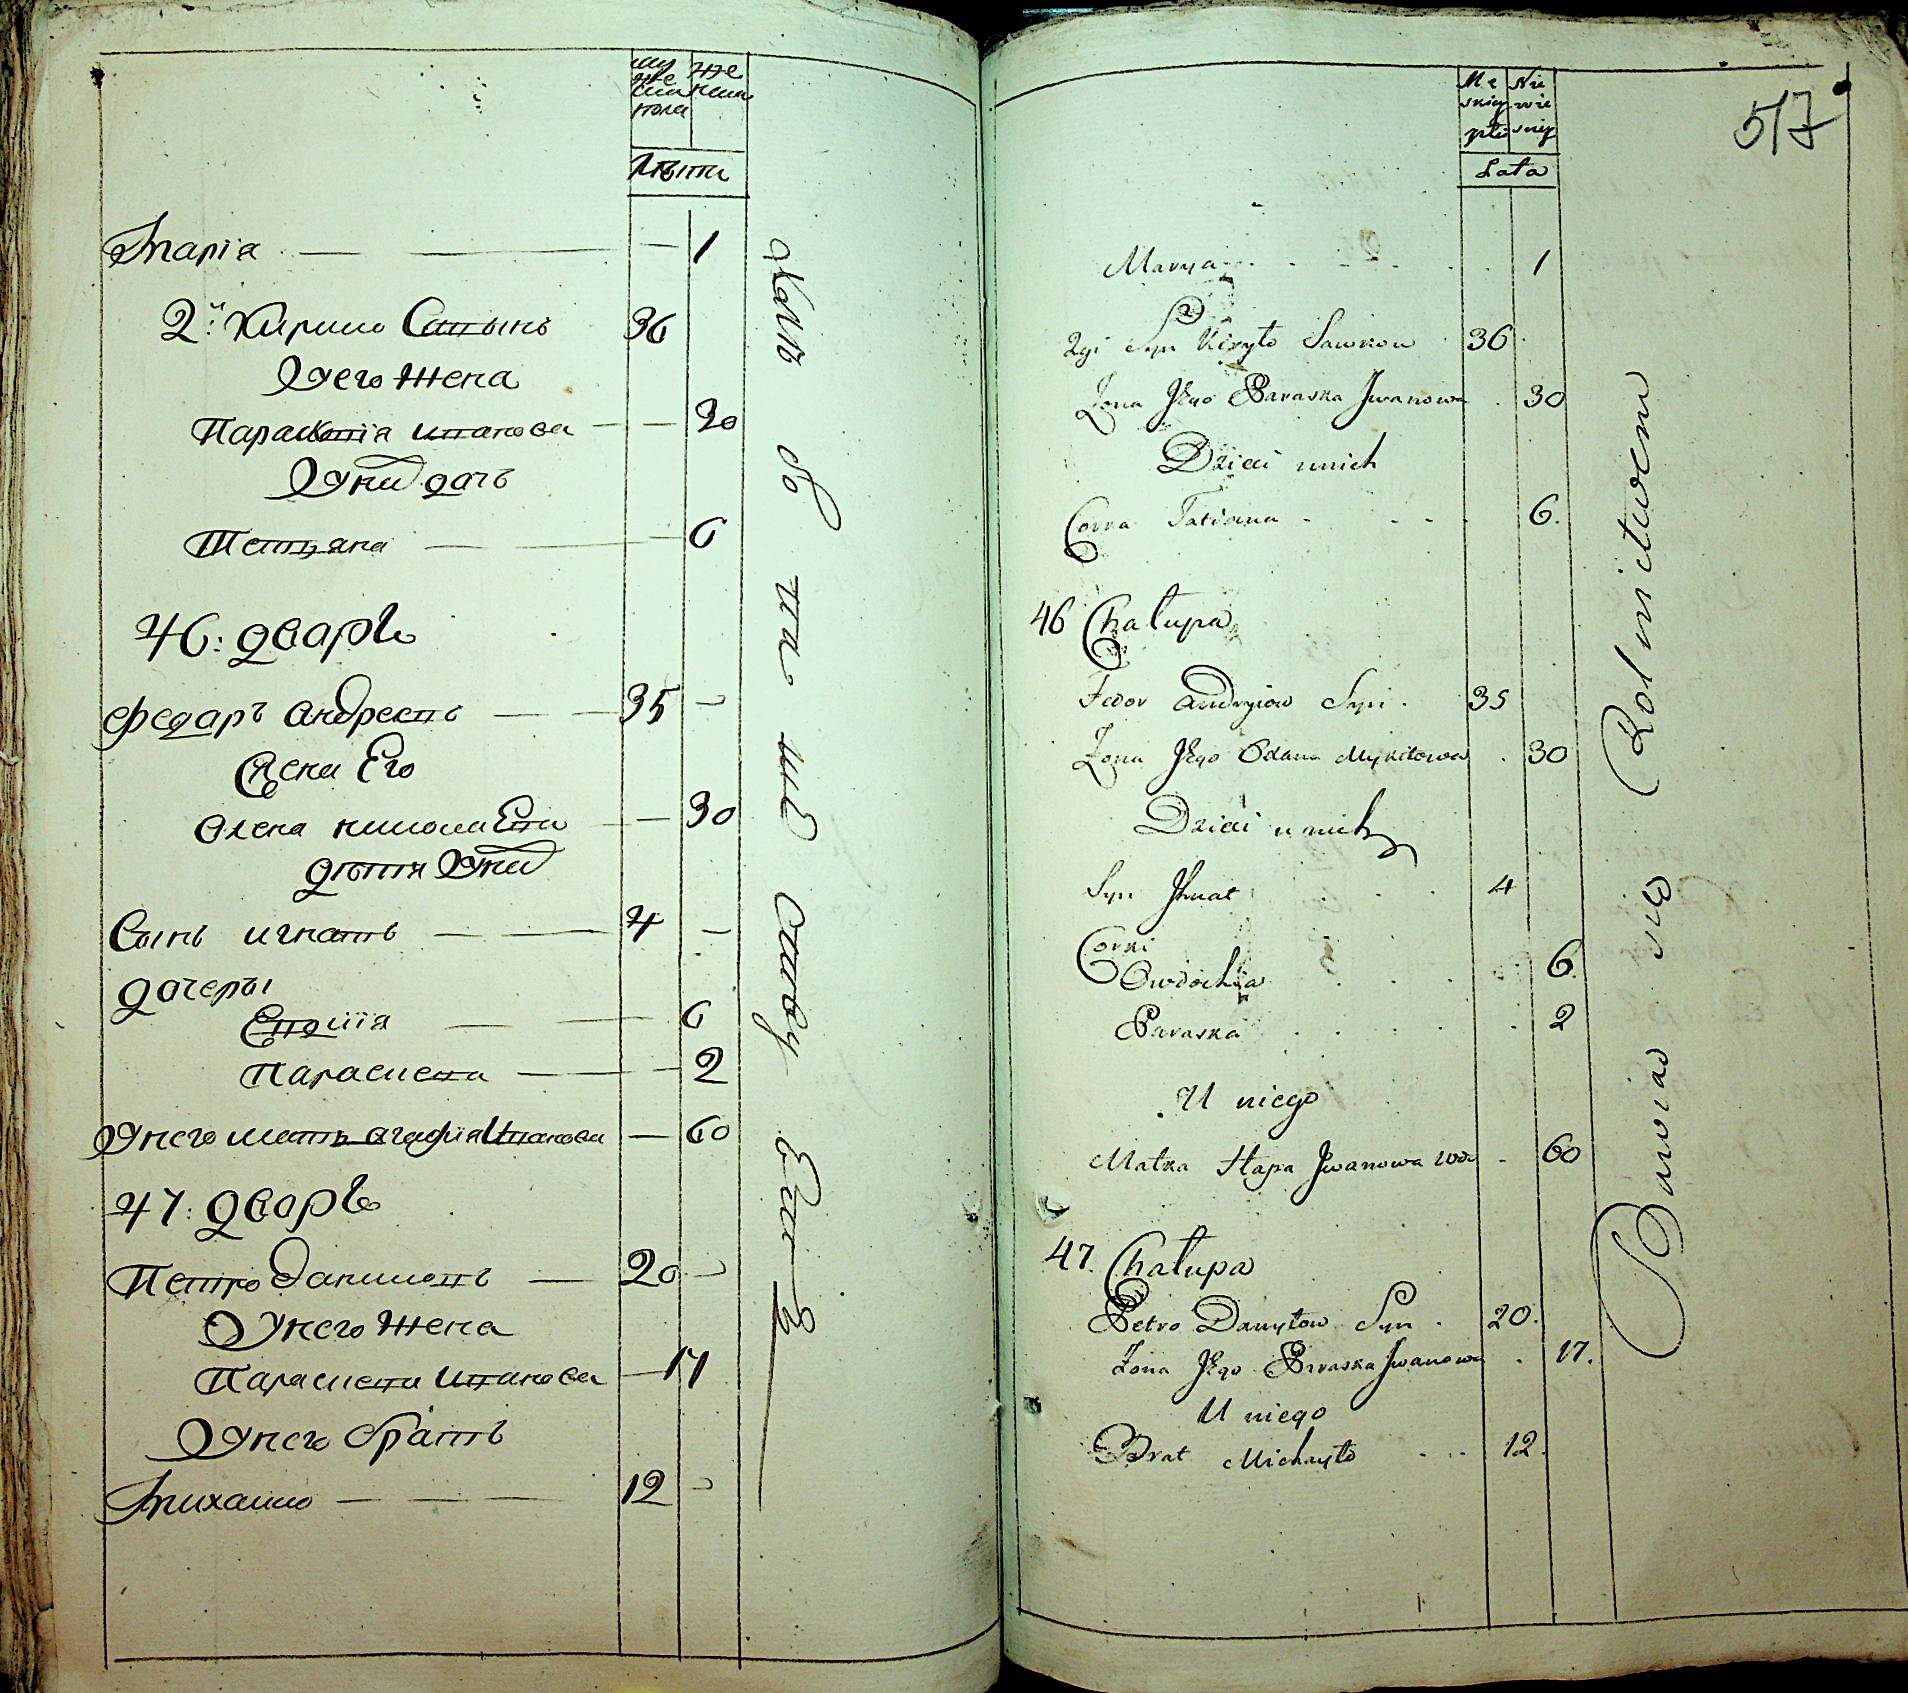 му же ска пола
же нска
Лѣти
Марiа — — — 1
2й Кирило Савынъ 36
У его жена
Параскевiя Иванова — — 30
У них дочъ
Тетяна — — — 6
46: дворъ
Федаръ Андреевъ — — 35 —
Жена Его
Олена николаева — — 30
дѣти У них
Сынъ игнатъ — — 4 —
дочеры
Евдокiя — — 6
Параскева — — 2
У него мать агафiя Иванова — 60
47: дворъ
Петро Даниловъ — 20 —
У него жена
Параскева Иванова — 17
У него братъ
Михаило — — — 12 —
517
Mę skiey płci
Nie wie sciey
Lata
Marya . . . . . . 1
2gi Syn Kiryło Sawkow . 36
Żona Jego Paraska Jwanowa . 30
Dzieci unich
Corka Tatiana . . . . 6.
46 Chałupa
Fedor Andryiow Syn . 35
Żona Jego Odana Mykitowa . 30
Dzieci u nich
Syn Jhnat . . . 4
Corki
Owdochia . . . . 6.
Paraska . . . . . 2
U niego
Matka Hapa Jwanowa wdo . 60
47. Chałupa
Petro Danyłow Syn . 20.
Żona Jego Paraska Jwanowa . 17.
U niego
Brat Michayło . . . 12.
Bawiao się Rolnictwem